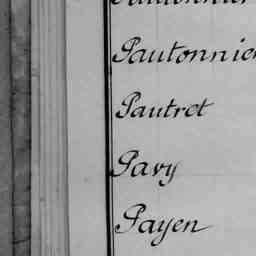 Pautonnie
Pautret
Pavy
Payen